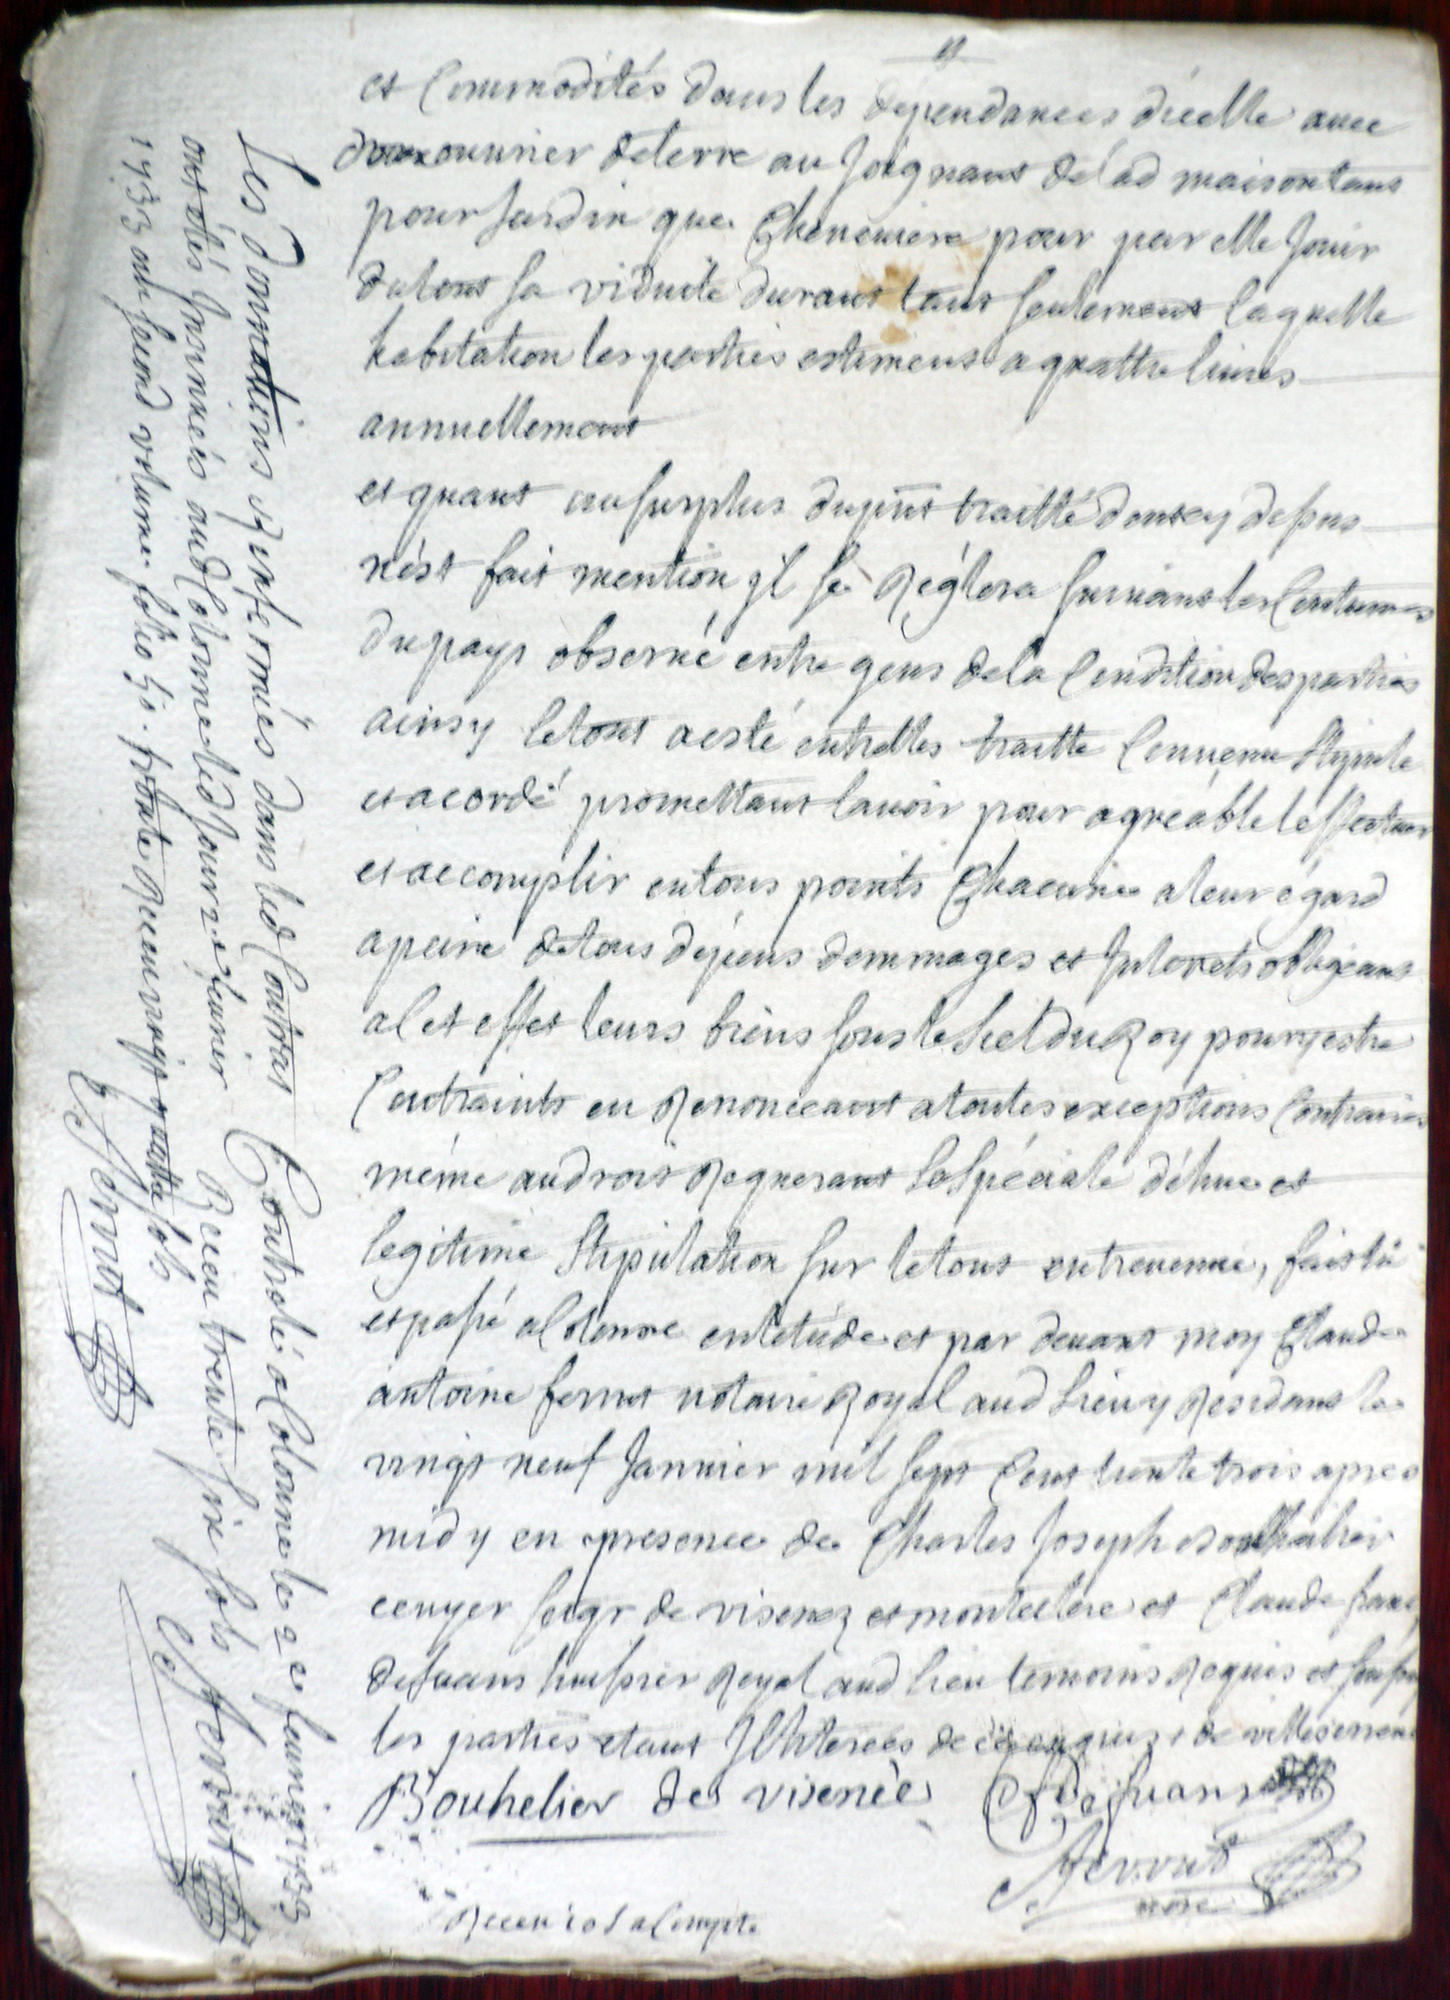 et Commodités dans les dependances d'icelle avec
ouurier de terre au Joignant de lad maison tant
pour Jardin que Cheneuiere pour par elle Jouir
du tout sa viduite durant tant seulement laquelle
habitation les parties estiment a quattre liures
annuellement
et quant au surplus du pnt traitté dont cy dessus
n'est fait mention jl se Réglera suiuant les Coutumes
du pays obserué entre gens de la Condition des parties
ainsy le tout a esté entrelles traitte Conuenu Stipule
et acordé promettant lauoir pour agréable leffectuer
et accomplir en tous points Chacune a leur égard
a peine de tous dépens dommages et Jnterets obligeant
a cet effet leurs biens sous le Scel du Roy pour y estre
Contraints en Renonceant a toutes exceptions Contraires
méme au droit Requerant la Spéciale déhue et
legitime Stipulation sur le tout entreuenue, fait lu
et passé a Colonne en létude et par deuant moy Claude
antoine ferrut notaire Royal aud Lieu y Residant le
vingt neuf Januier mil sept Cent trente trois apres
midy en presence de Charles Joseph Bouhelier
ecuyer seigr de visenez et monteclere et Claude franç
Defuans huissier Royal aud lieu temoins Requis et soussig
les parties etant Jlliterées de ce enquis et de
Bouhelier de visenée Cf Defuans
Ferrut
nore
Receu 10 s a Compte
Les donnations Renfermées dans led Contrat
ont étés Jnsinuées aud Colonne led Jour 2e feurier
1733 au second volume folio 50. trente Receu vingt quattre sols
Ferrut
Controlé a Colonne le 2e feurier 1733
Receu trente six sols
Ferrut